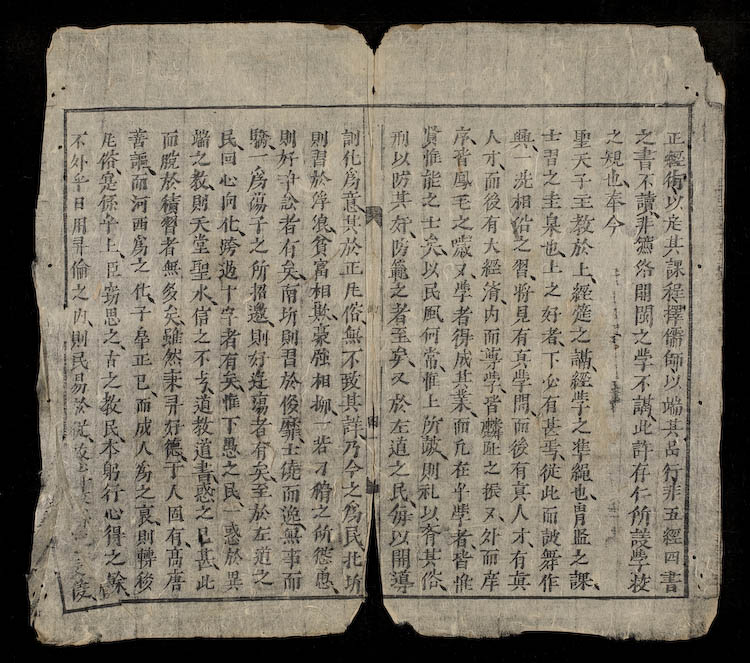 正經術以定其課程擇儒師以端其品行非五經四書
之書不讀非濂洛關閩之學不講此許存仁所設學校
之規也奉今
聖天子主教於上經筵之講經學之準䋲也胄監之課
士習之圭臬也上之好者下必有甚焉從此而皷舞作
興一洗相沿之習將見有真學問而後有真人才有真
人才而後有大經濟内而尊學皆麟趾之振又外而庠
序皆鳳毛之噦又學者得成其業而凢在乎學者皆惟
賢惟能之士矣以民風何常惟上所皷則礼以齊其俗
刑以防其奸防範之者至矣又於左道之民每以開導
訓化爲意其於正凢俗無不致其詳乃今之爲民北圻
則習於浮狼貧富相欺豪強相抑一若刁猾之所慫恿
則好爭訟者有矣南圻則習於侈靡土饒而逸無事而
驕一爲蕩子之所招邀則好遊蕩者有矣至於左道之
民回心向化跨過十字者有矣惟下愚之民一惑於異
端之教則天堂聖水信之不去道教道書惑之已甚此
而脫於積習者無多矣雖然秉彛好德于人固有髙唐
善謳而河西爲之化子皐正已而成人為之衰則轉移
凢俗寔係乎上臣竊思之古之教民本躬行心得之餘
不外乎日用彛倫之内則民易於從